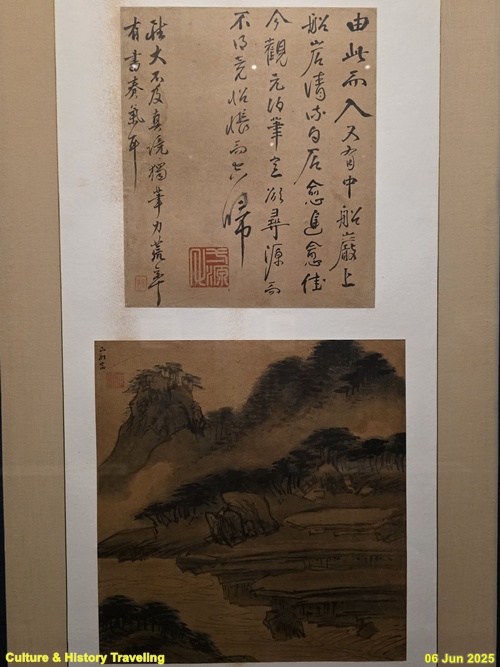 由此而入又有中船巖上
船岩清流白石愈進愈佳
今觀筆意欲尋源而
不得竟悵而歸
雖大不及真境獨筆力荒率
有書氣耳
Culture & History Traveling
06 Jun 2025